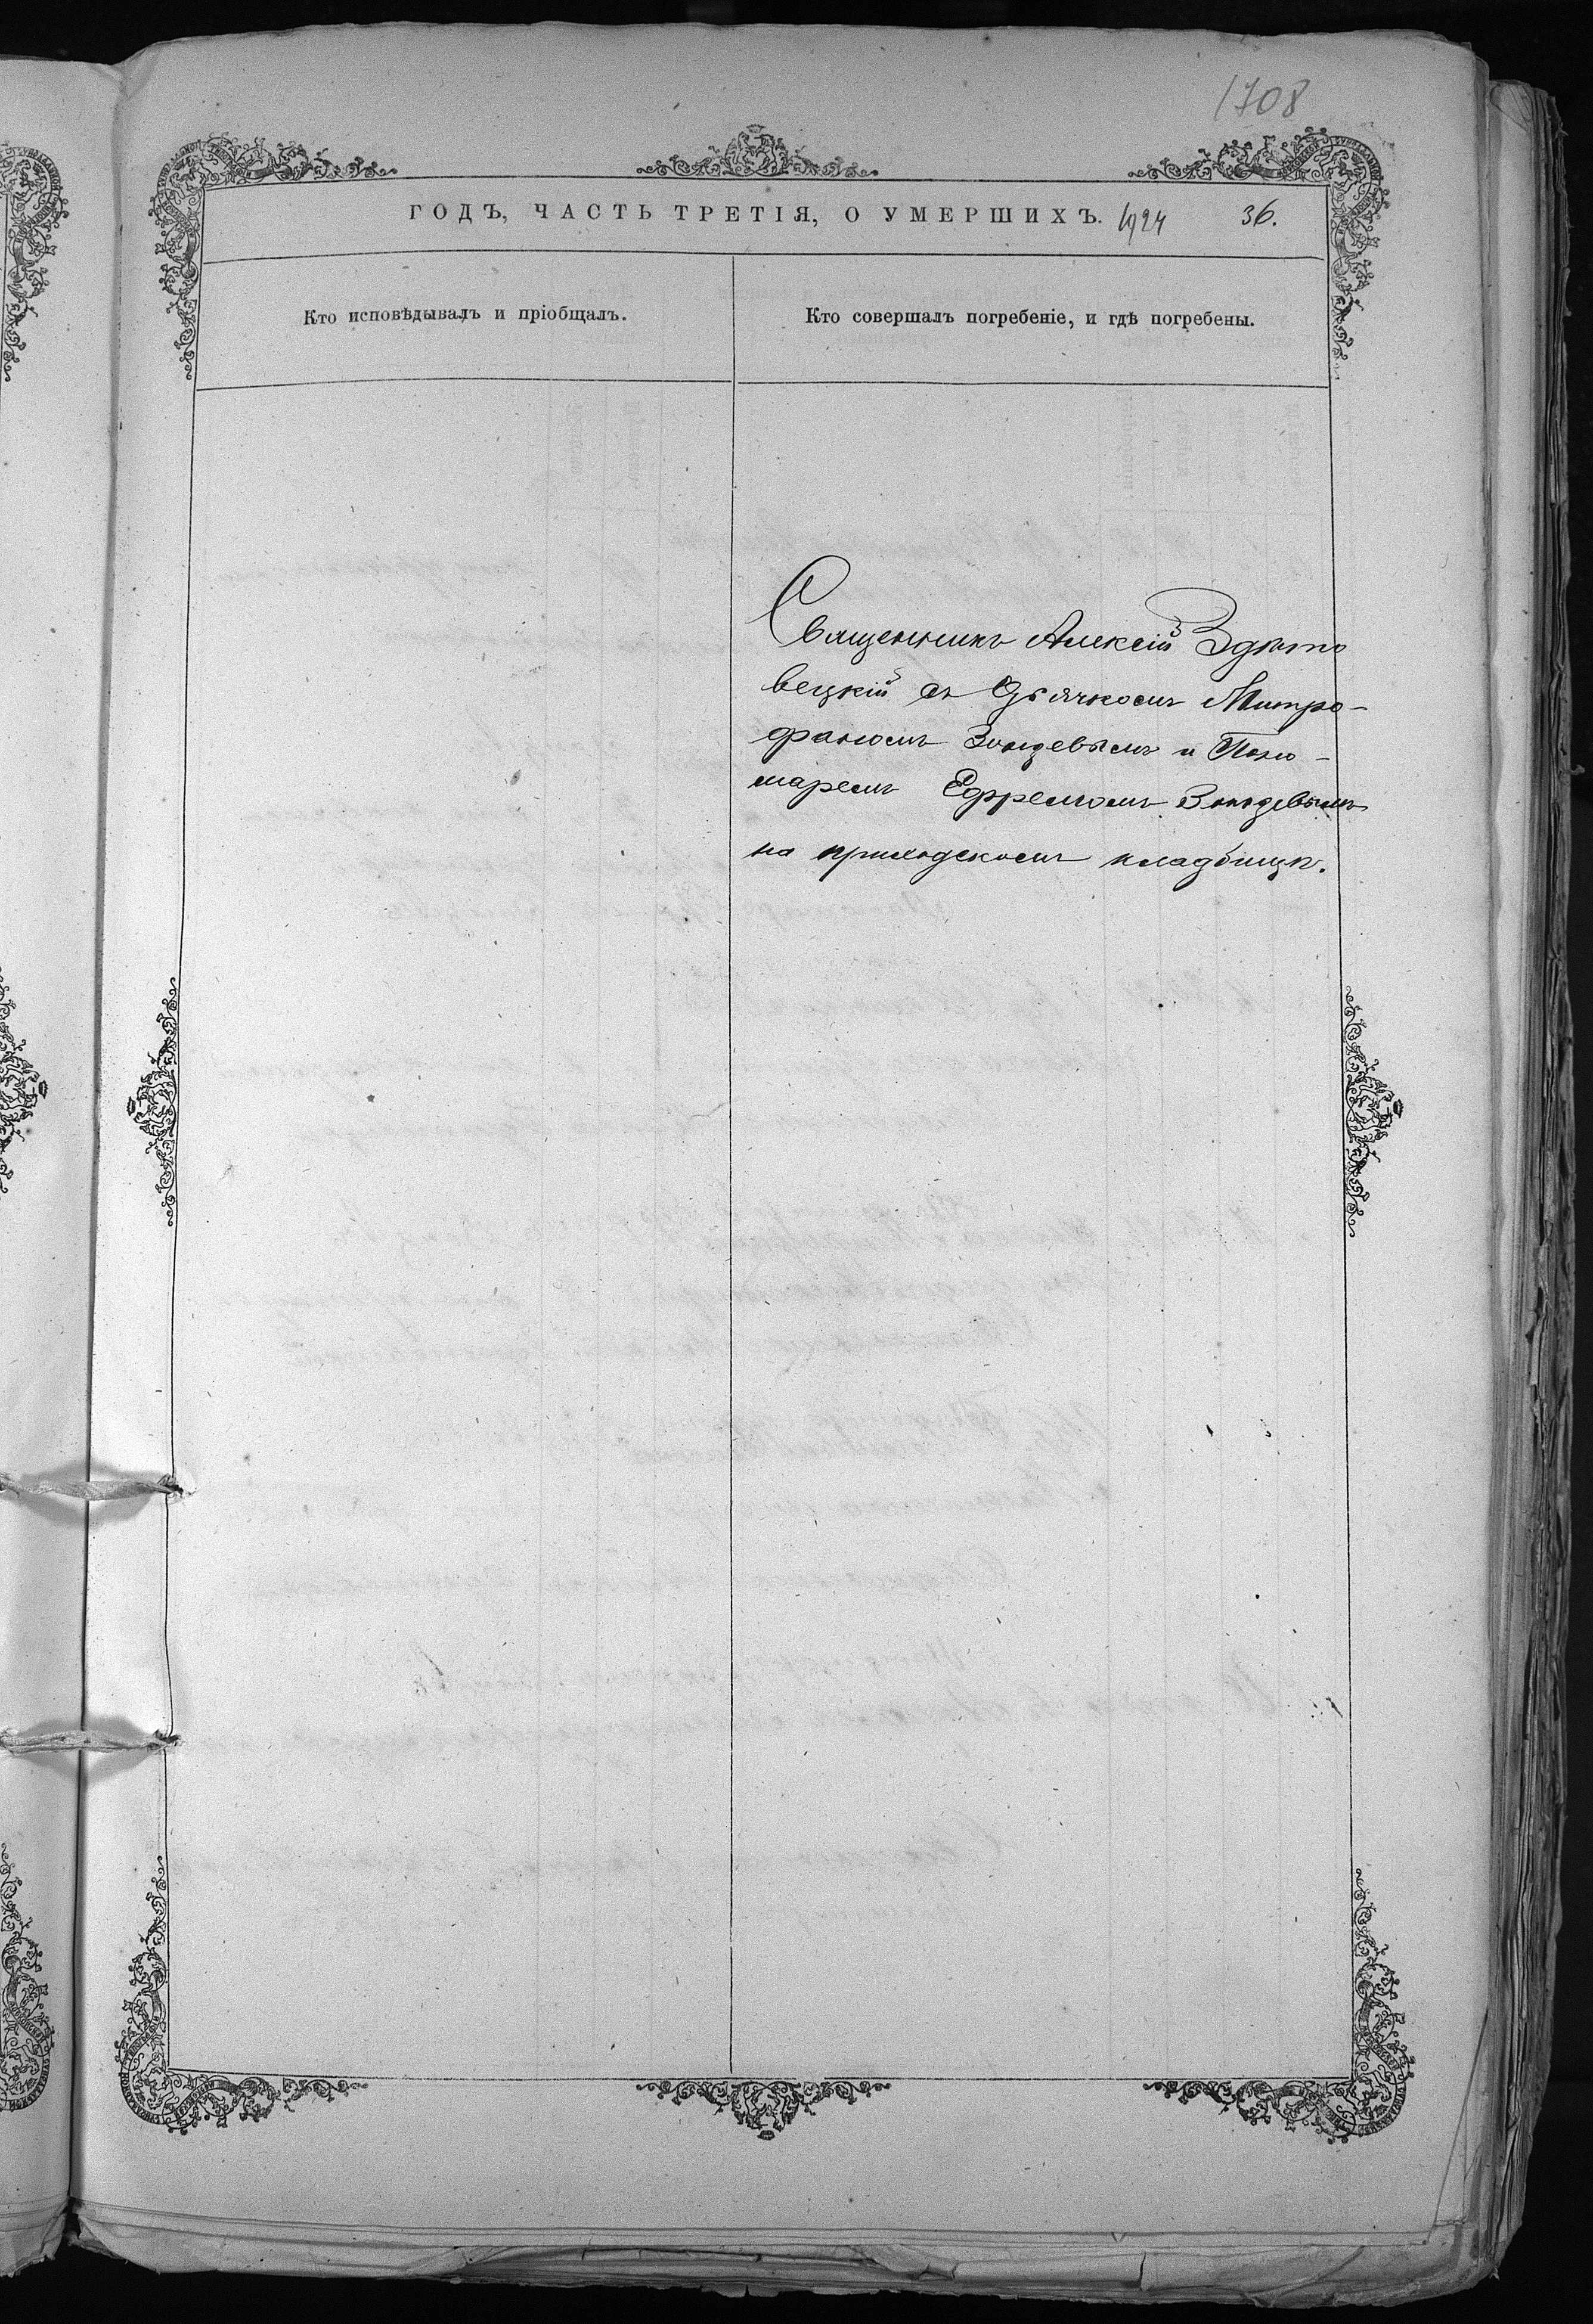 1708
ГОДЪ, ЧАСТЬ ТРЕТІЯ, О УМЕРШИХЪ. 1924 36.
Кто исповѣдывалъ и пріобщалъ.
Кто совершалъ погребеніе, и гдѣ погребены.
Священникъ Алексій Здѣто
вецкій съ Дьячкомъ Митро-
фаномъ и Поно-
маремъ Ефремомъ
на приходскомъ кладбищѣ.